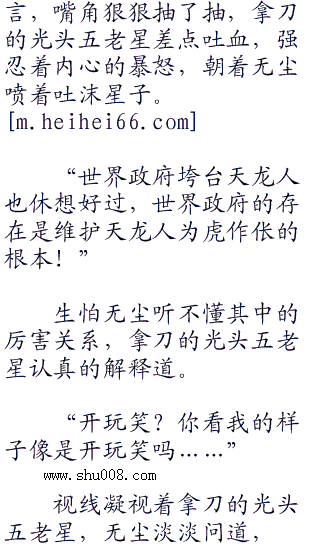 言，嘴角狠狠抽了抽，拿刀
的光头五老星差点吐血，强
忍着内心的暴怒，朝着无尘
喷着吐沫星子。
[m.heihei66.com]
“世界政府垮台天龙人
也休想好过，世界政府的存
在是维护天龙人为虎作伥的
根本！”
生怕无尘听不懂其中的
厉害关系，拿刀的光头五老
星认真的解释道。
“开玩笑？你看我的样
子像是开玩笑吗……”
www.shu008.com
视线凝视着拿刀的光头
五老星，无尘淡淡问道，